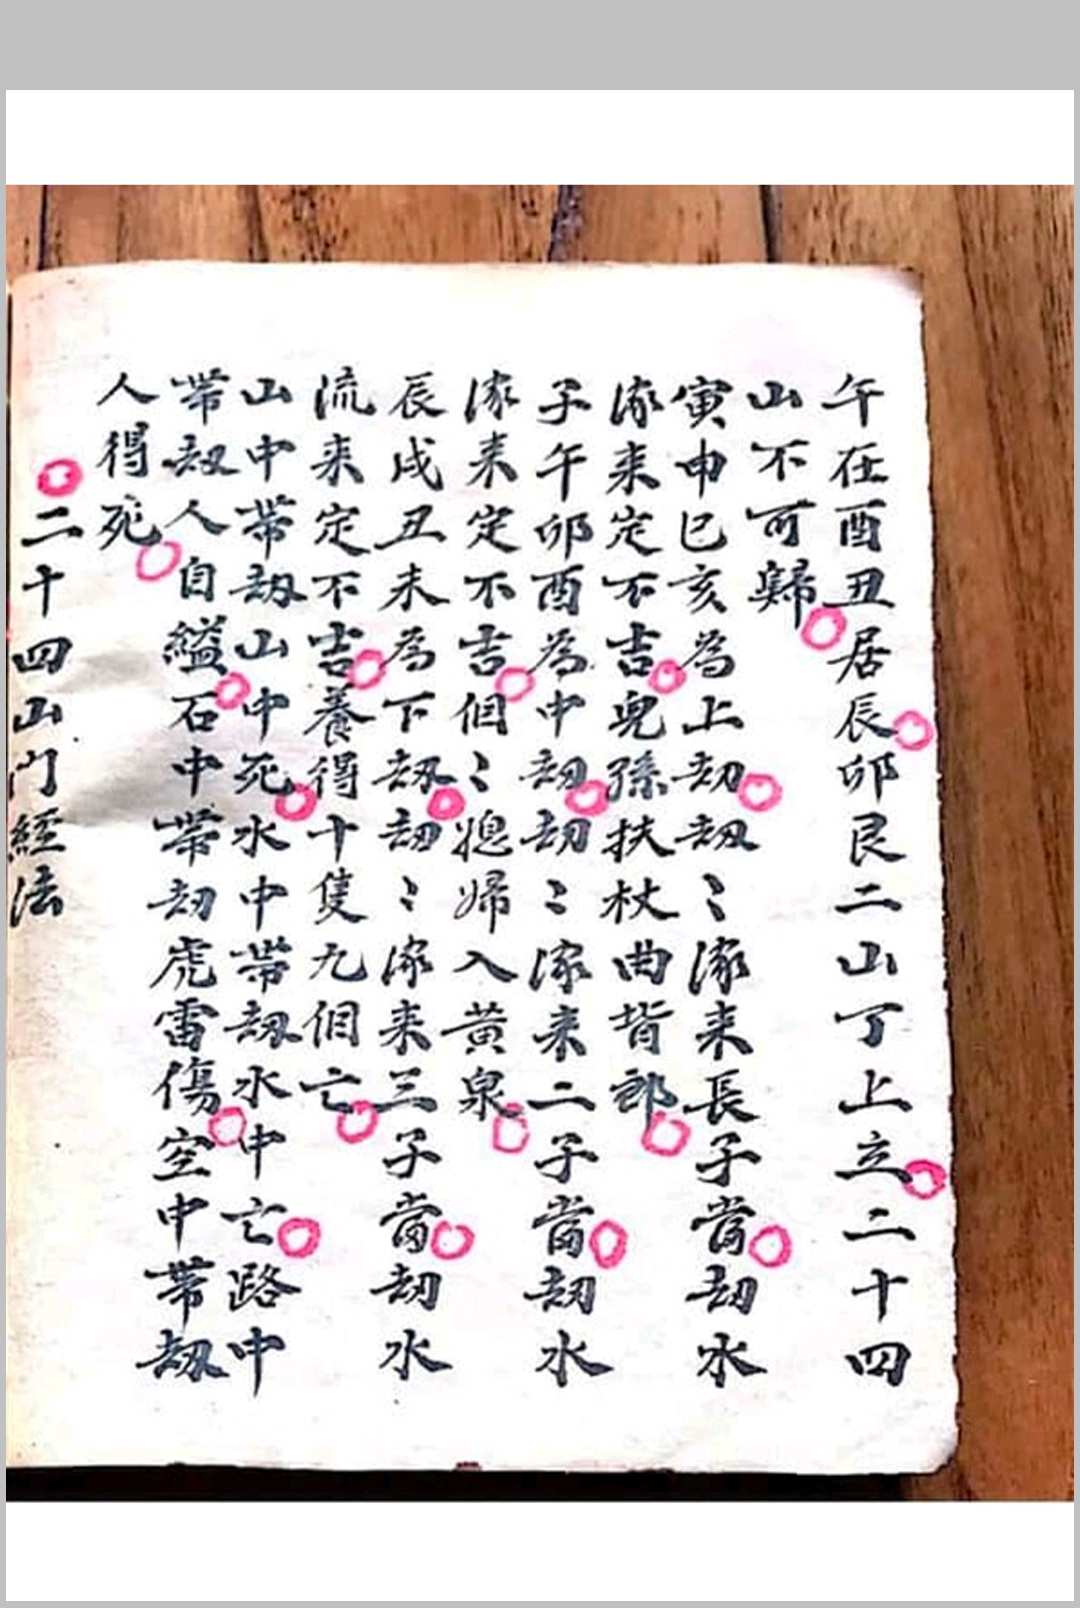 午在酉丑居辰卯艮二山丁上立二十四
山不可歸
寅申巳亥為上劫劫〻家来長子當劫水
家来定不吉兒孫扶杖曲背郎
子午卯酉為中劫劫〻家来二子當劫水
家来定不吉個〻媳婦入黃泉
辰戍丑未為下劫劫〻家来三子當劫水
流来定不吉養得十隻九個亡
山中帶劫山中死水中帶劫水中亡路中
帶劫人自縊石中帶劫虎雷傷空中帶劫
人得死
二十四山門經法